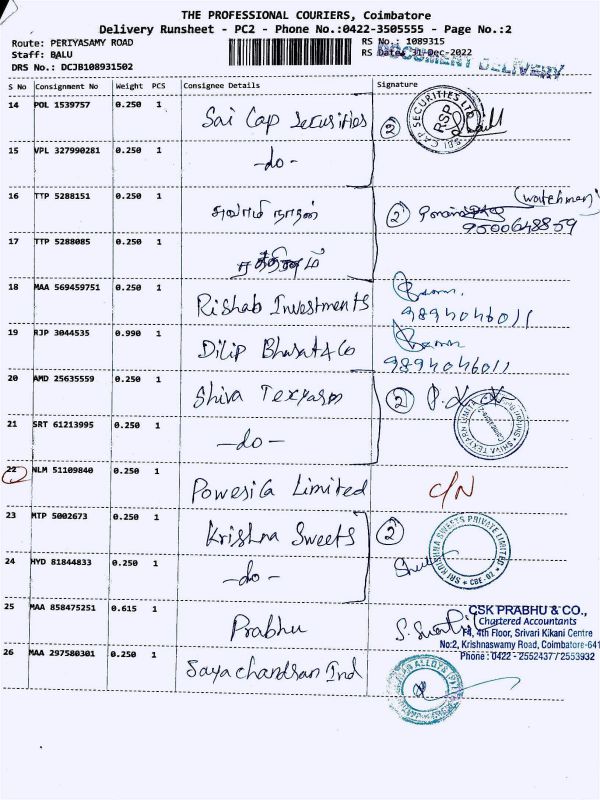 THE PROFESSIONAL COURIERS, Coimbatore
Delivery Runsheet - PC2 - Phone No.:0422-3505555 - Page No.:2
Route: PERIYASAMY ROAD
Staff: BALU
DRS No.: DCJB108931502
RS No.: 1089315
RS Date: 31-Dec-2022
DOCUMENT DELIVERY
S No Consignment No Weight PCS Consignee Details Signature
14 POL 1539757 0.250 1 Sai Cap Securities 2 SAI CAP SECURITIES LTD RSP
15 VPL 327990281 0.250 1 -do-
16 TTP 5288151 0.250 1 2 (watchman)
9500648859
17 TTP 5288085 0.250 1
18 MAA 569459751 0.250 1 Rishab Investments
9894046011
19 RJP 3044535 0.990 1 Dilip Bharat & Co
9894046011
20 AMD 25635559 0.250 1 Shiva Texyarn 2 SHIVA TEXYARN LIMITED
21 SRT 61213995 0.250 1 -do-
22 NLM 51109840 0.250 1 Powesica Limited C/N
23 MTP 5002673 0.250 1 Krishna Sweets 2 SRI KRISHNA SWEETS PRIVATE LIMITED CBE-02
24 HYD 81844833 0.250 1 -do-
25 MAA 858475251 0.615 1 Prabhu
CSK PRABHU & CO.,
Chartered Accountants
F4, 4th Floor, Srivari Kikani Centre
No:2, Krishnaswamy Road, Coimbatore-641
Phone : 0422 - 2552437 / 2553932
26 MAA 297580301 0.250 1 Sayachandran Ind